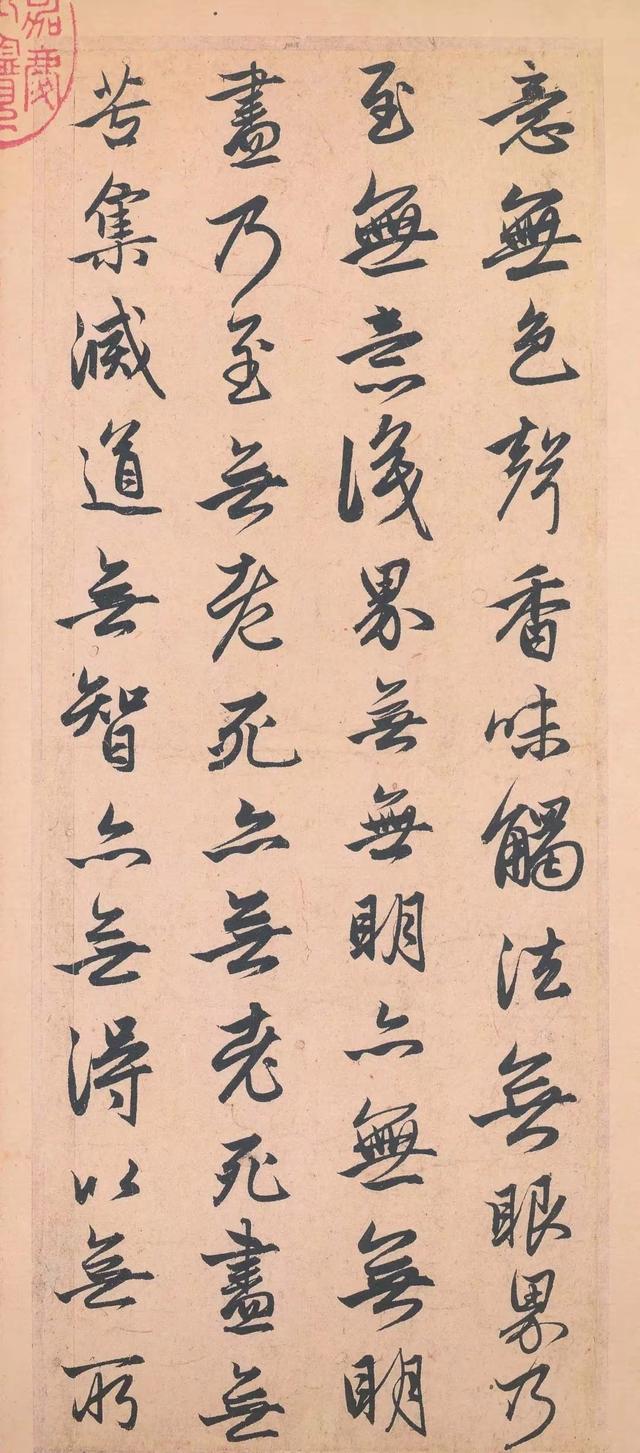 意無色聲香味觸法無眼界乃
至無意識界無無明亦無無明
盡乃至無老死亦無老死盡無
苦集滅道無智亦無得以無所
嘉慶